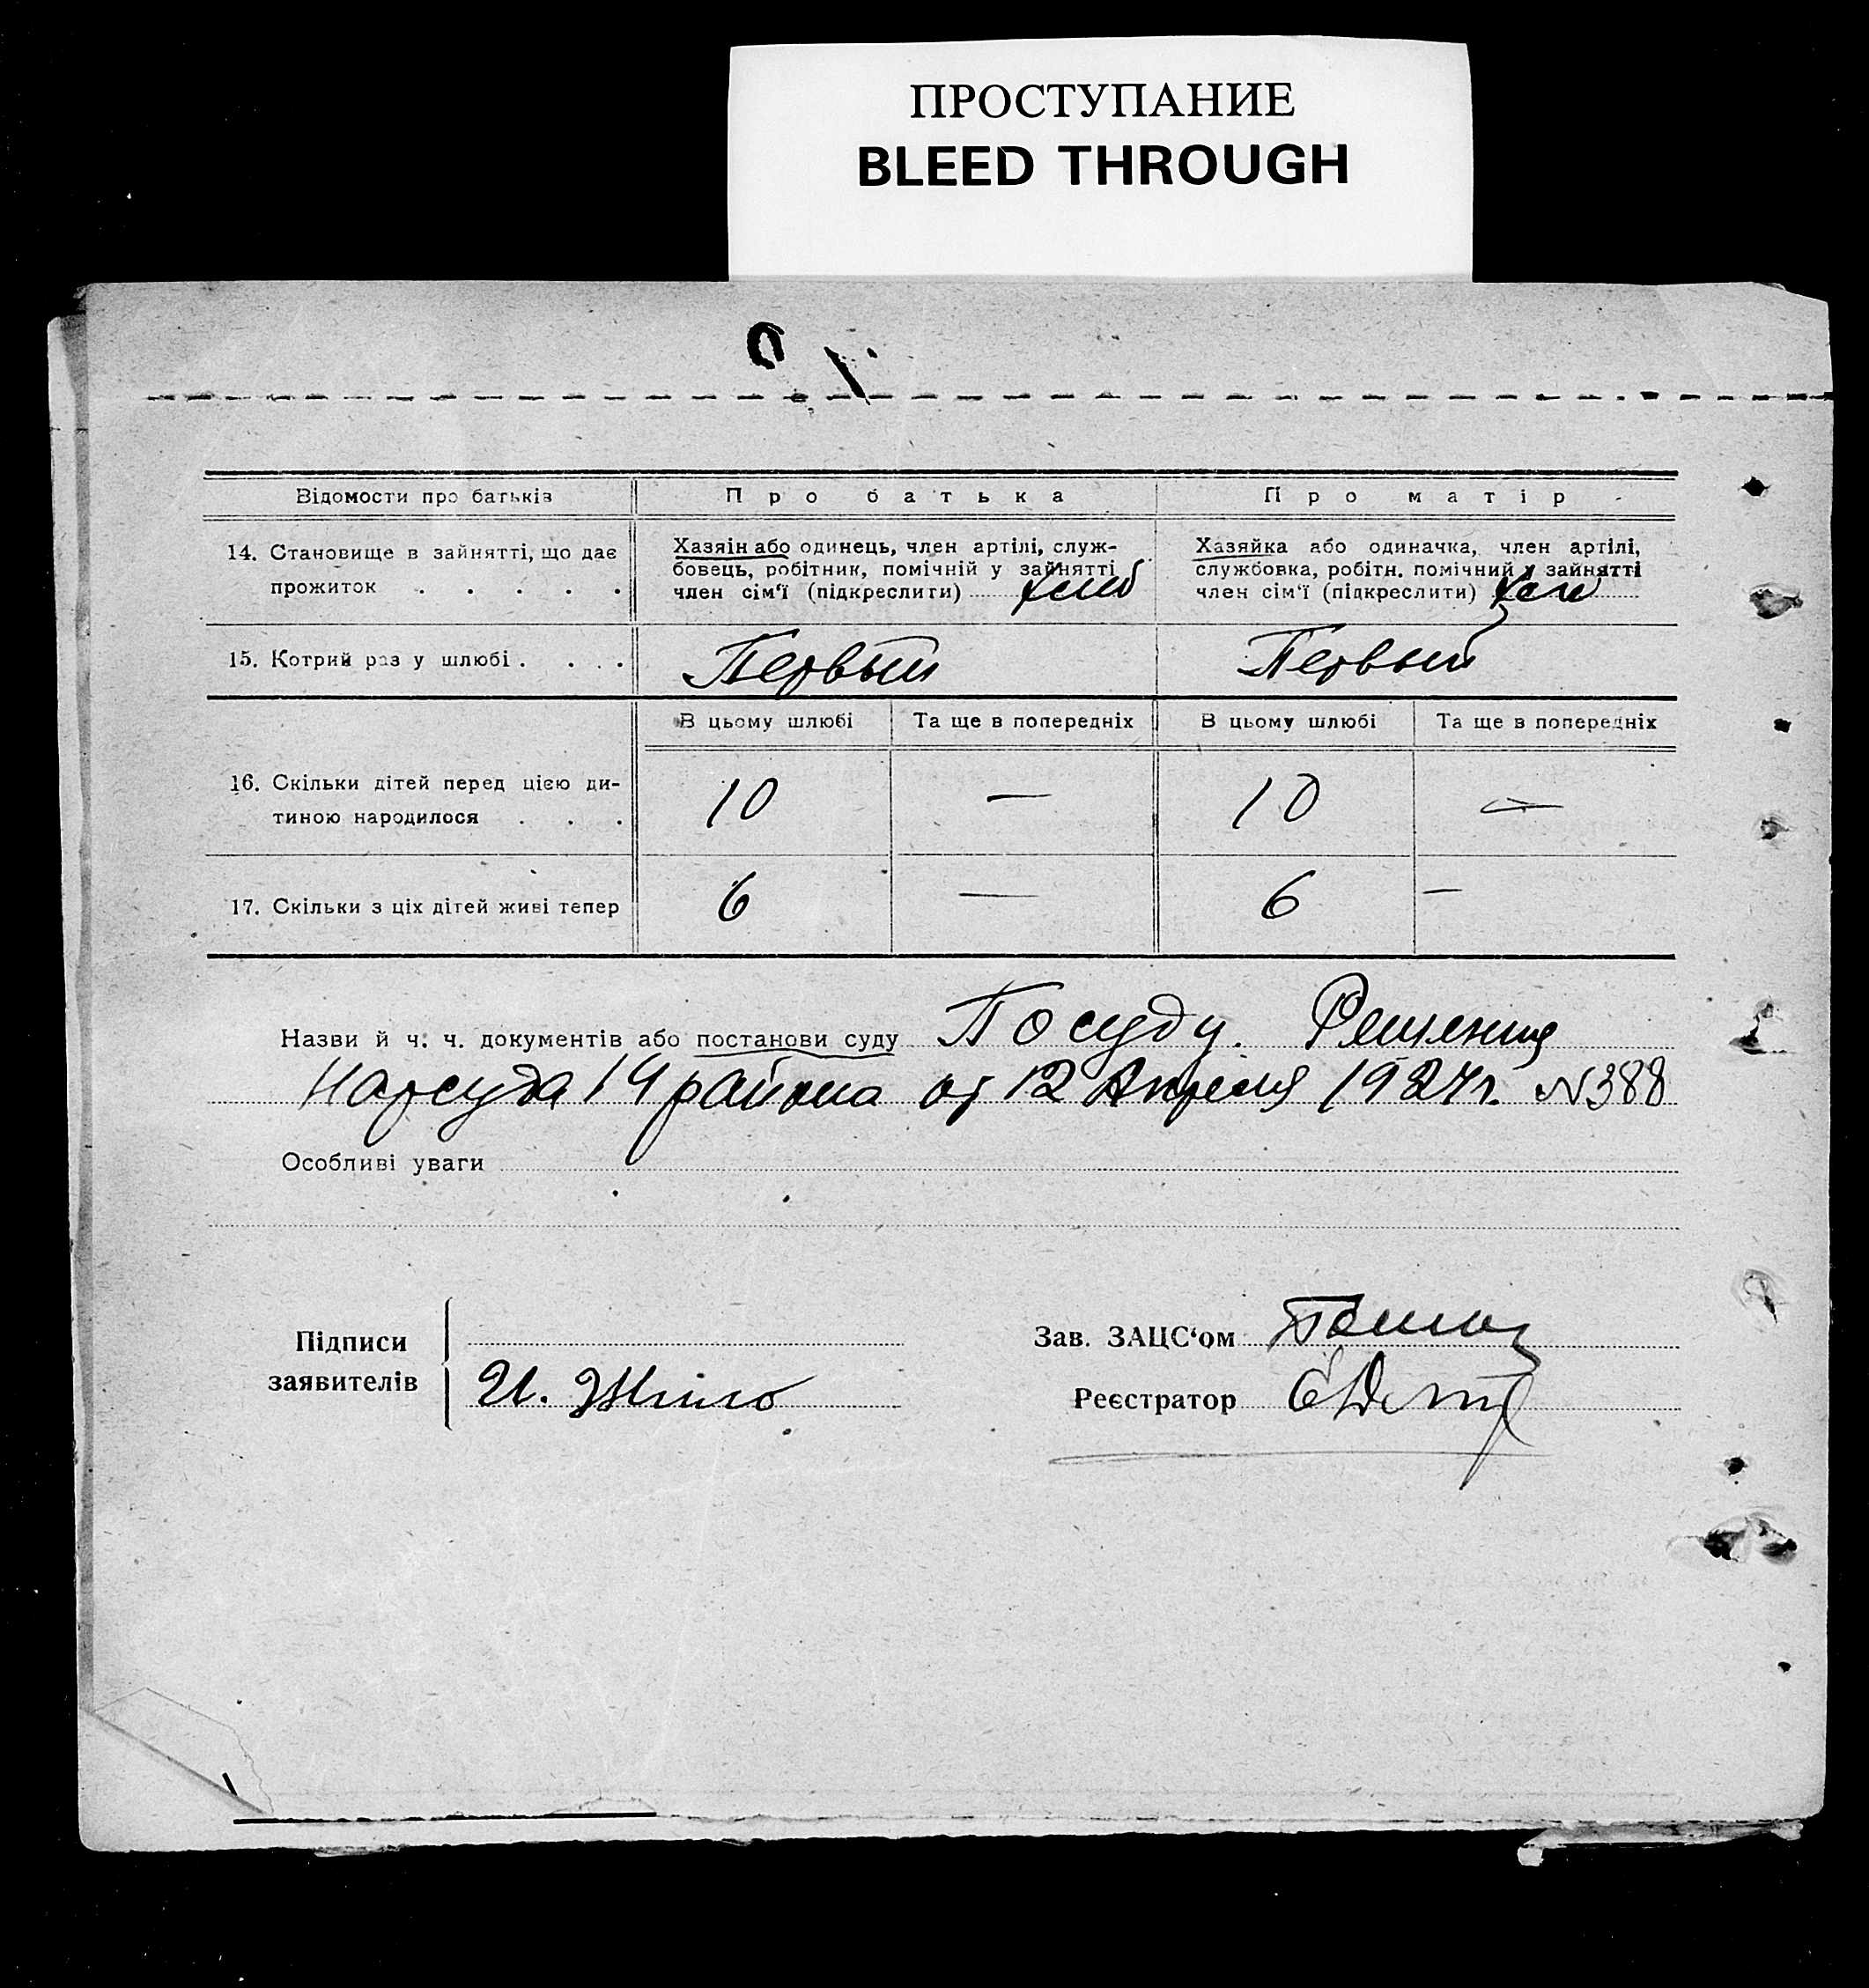 ПРОСТУПАНИЕ
BLEED THROUGH
Відомости про батьків
Про батька
Про матір
14. Становище в зайнятті, що дає
прожиток . . . . .
Хазяін або одинець, член артілі, служ-
бовець, робітник, помічній у зайнятті
член сім'ї (підкреслити)
Хазяйка або одиначка, член артілі,
службовка, робітн. помічний у зайнятті
член сім'ї (підкреслити)
15. Котрий раз у шлюбі . . . .
Первый
Первый
В цьому шлюбі
Та ще в попередніх
В цьому шлюбі
Та ще в попередніх
16. Скільки дітей перед цією ди-
тиною народилося . . .
10
—
10
—
17. Скільки з ціх дітей живі тепер
6
—
6
—
Назви й ч. ч. документів або постанови суду По суду. Решение
Нарсуда 14 района от 12 Апреля 1927г. N388
Особливі уваги
Підписи
заявителів
И.
Зав. ЗАЦС'ом
Реєстратор